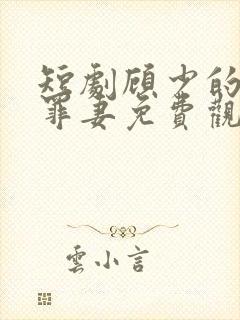 短劇顾少的
罪妻免費觀
雲小言